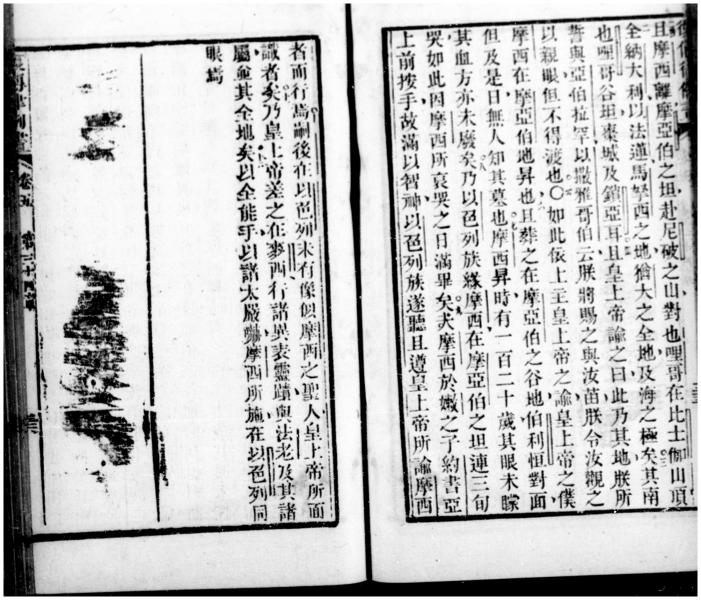 且摩西離摩亞伯之坦赴尼破之山對也哩哥在比士伽山頂
全納大利以法蓮馬拏西之地猶大之全地及海之極矣其南
也哩哥谷坦棗城及鎖亞耳且皇上帝諭之曰此乃其地朕所
誓與亞伯拉罕以撒雅哥伯云朕將賜之與汝苗朕令汝觀之
以親眼但不得渡也○如此依上主皇上帝之諭皇上帝之僕
摩西在摩亞伯地昇也且葬之在摩亞伯之谷地伯利恒對面
但及是日無人知其墓也摩西昇時有一百二十歲其眼未矇
其血方亦未廢矣乃以色列族緣摩西在摩亞伯之坦連三旬
哭如此因摩西所哀哭之日滿畢矣夫摩西於嫩之子約書亞
上前按手故滿以智神以色列族遂聽且遵皇上帝所諭摩西
者而行焉嗣後在以色列未有像似摩西之聖人皇上帝所面
識者矣乃皇上帝差之在麥西行諸異表靈蹟與法老及其諸
屬並其全地矣以全能手以諸太嚴驚摩西所施在以色列同
眼焉
卷五